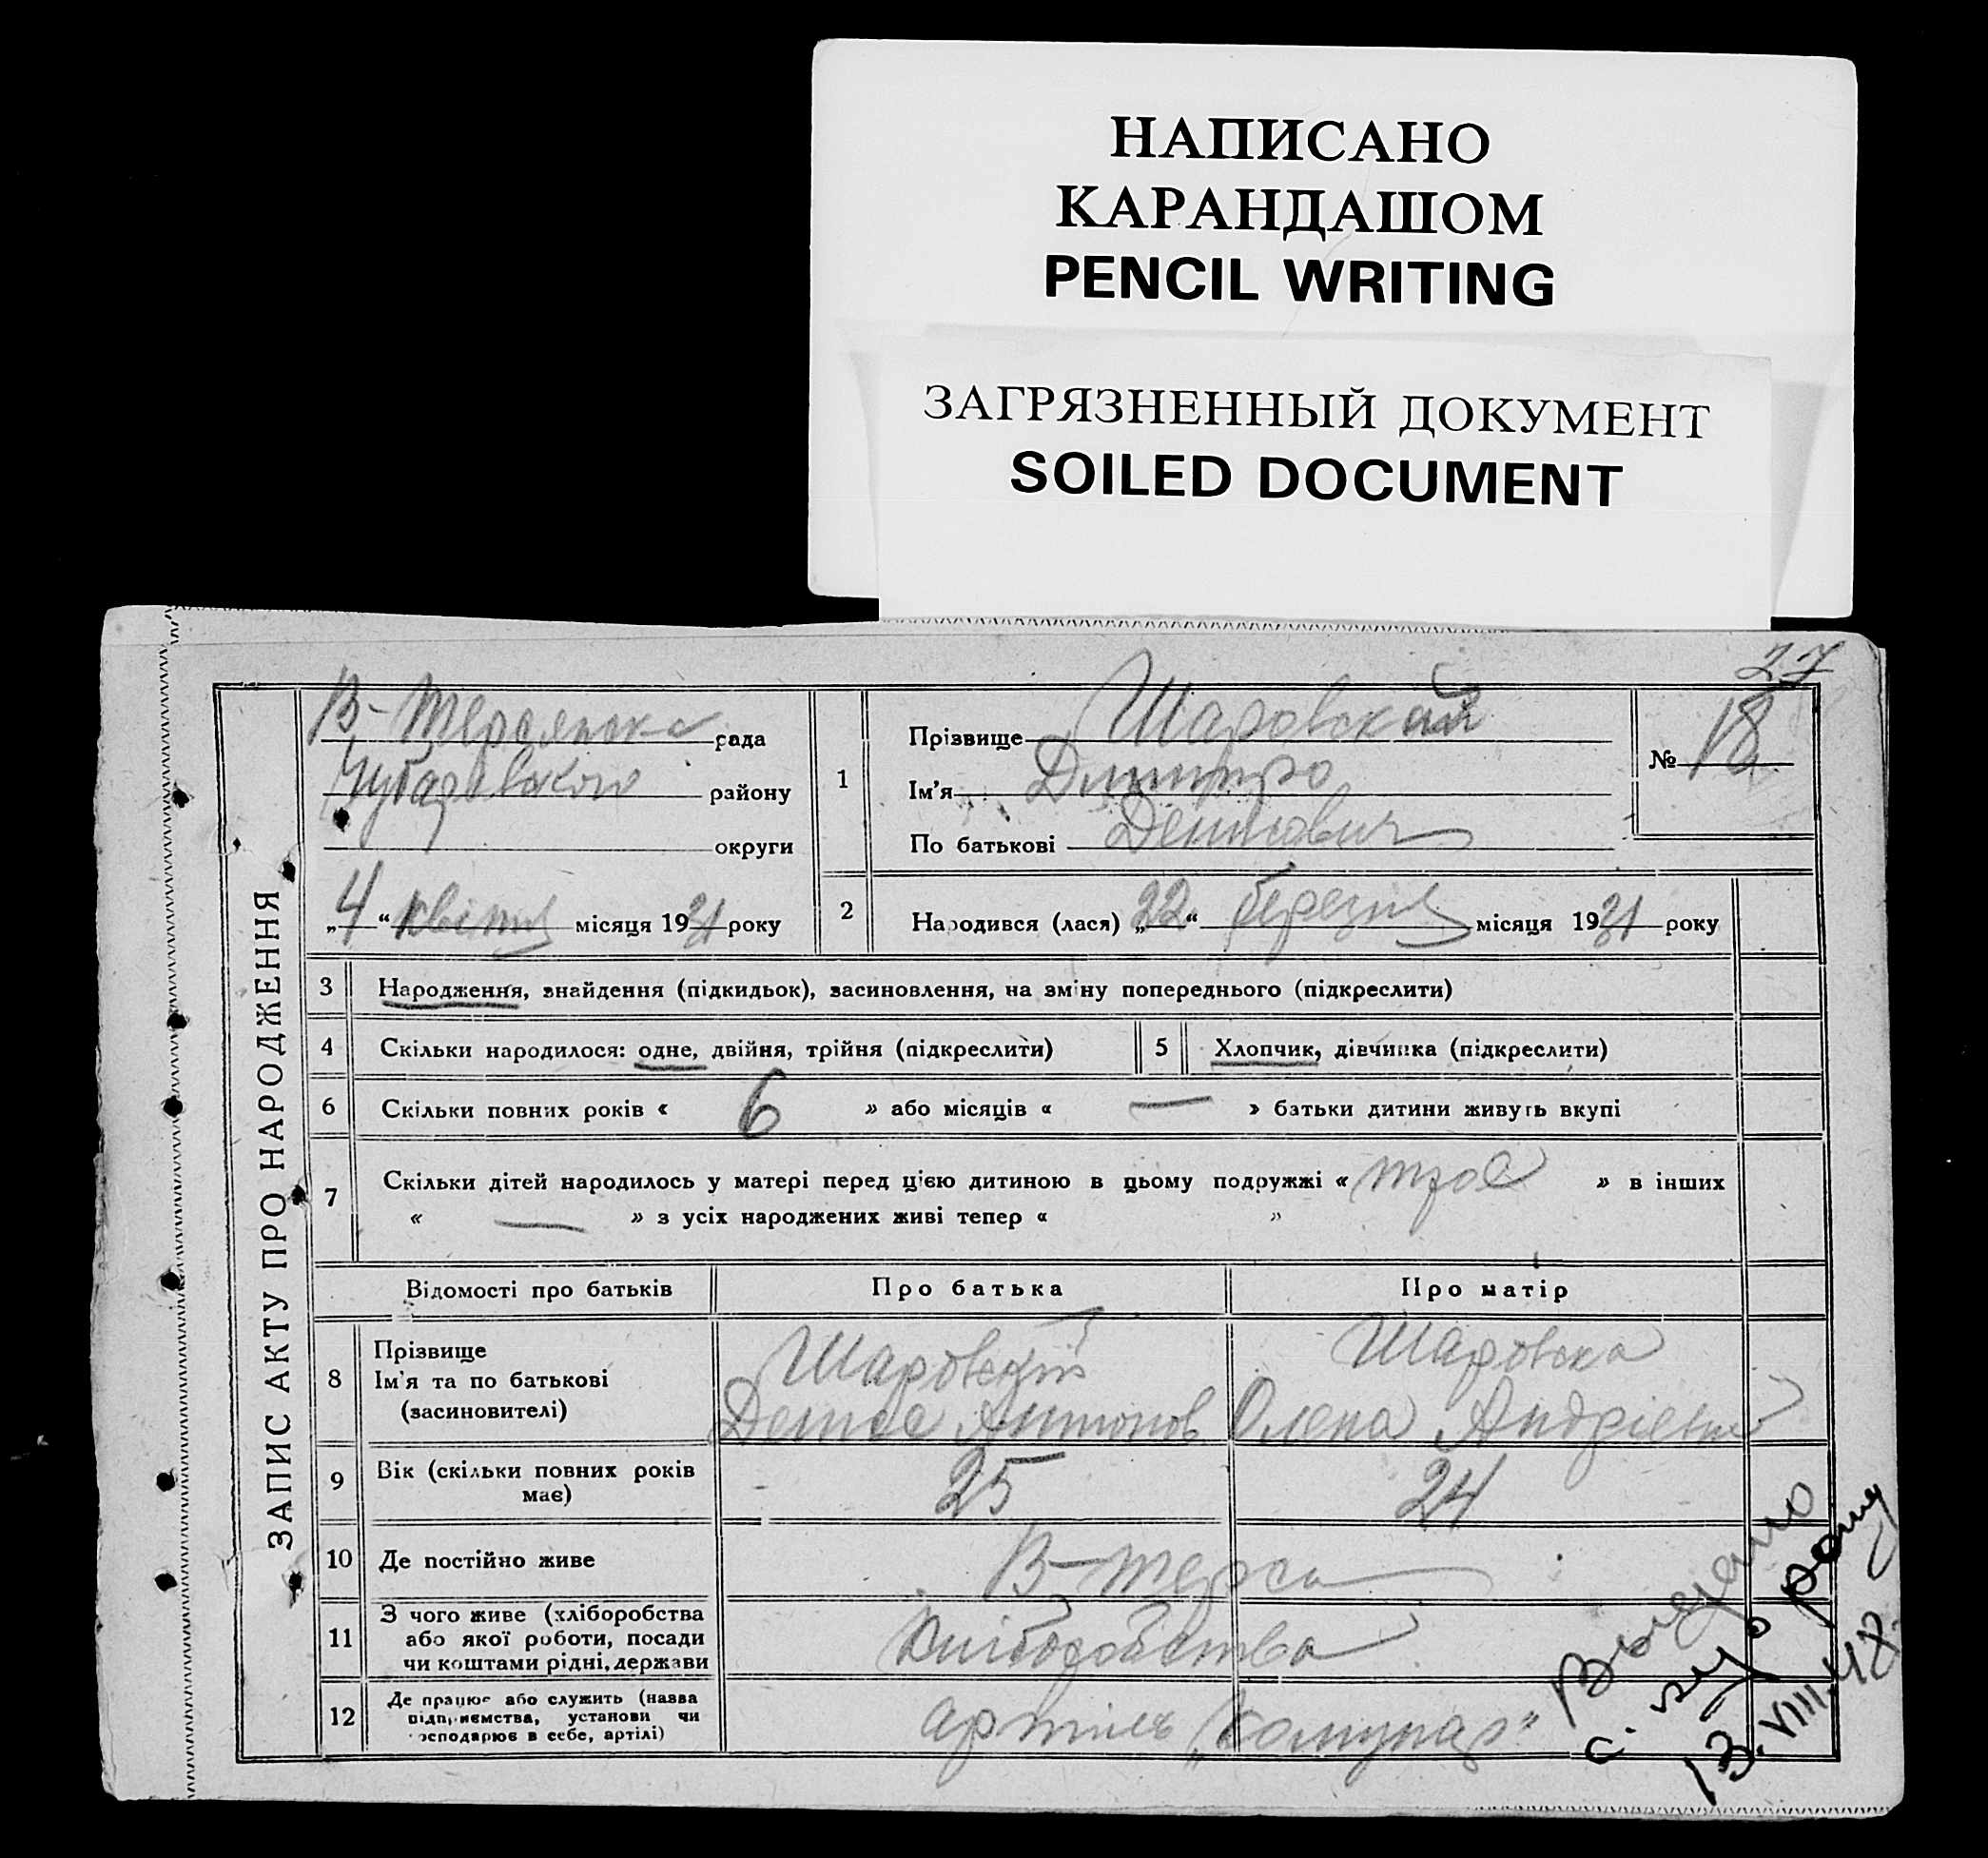 НАПИСАНО
КАРАНДАШОМ
PENCIL WRITING
ЗАГРЯЗНЕННЫЙ ДОКУМЕНТ
SOILED DOCUMENT
27
ЗАПИС АКТУ ПРО НАРОДЖЕННЯ
В-Терсянська рада
Чубарівського району
округи
„4“ квітня місяця 1931 року
1
Прізвище Шаровский
Ім'я Дмитро
По батькові Денисович
№ 18
2
Народився (лася) „22“ березня місяця 1931 року
3 Народження, знайдення (підкидьок), засиновлення, на зміну попереднього (підкреслити)
4 Скільки народилося: одне, двійня, трійня (підкреслити)
5 Хлопчик, дівчинка (підкреслити)
6 Скільки повних років « 6 » або місяців « — » батьки дитини живуть вкупі
7 Скільки дітей народилось у матері перед цією дитиною в цьому подружжі « троє » в інших
« — » з усіх народжених живі тепер « »
Відомості про батьків Про батька Про матір
8 Прізвище
Ім'я та по батькові
(засиновителі)
Шаровський
Денис Антонов
Шаровска
Олена Андріевна
9 Вік (скільки повних років
має)
25 24
10 Де постійно живе В-Терса
11 З чого живе (хліборобства
або якої роботи, посади
чи коштами рідні, держави
Хліборобства
12 Де працює або служить (назва
підприємства, установи чи
господарює в себе, артілі)
артіль „Комунар“
13.VIII.48.